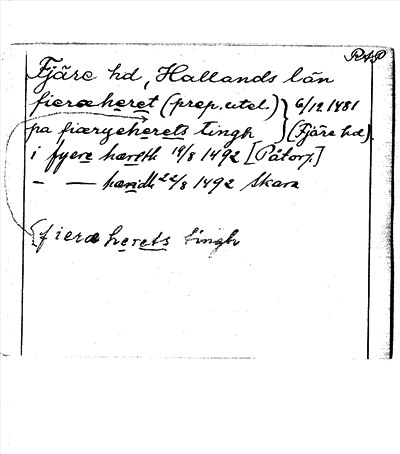 RAP
Fjäre hd, Hallands län
fieræheret (prep. utel.) } 6/12 1481
pa fiæryeherets tingh (Fjäre hd).
i fyere hæreth 19/8 1492 [Påtorp.]
– — hæridh 22/8 1492 Skara
{fieræ herets tingh